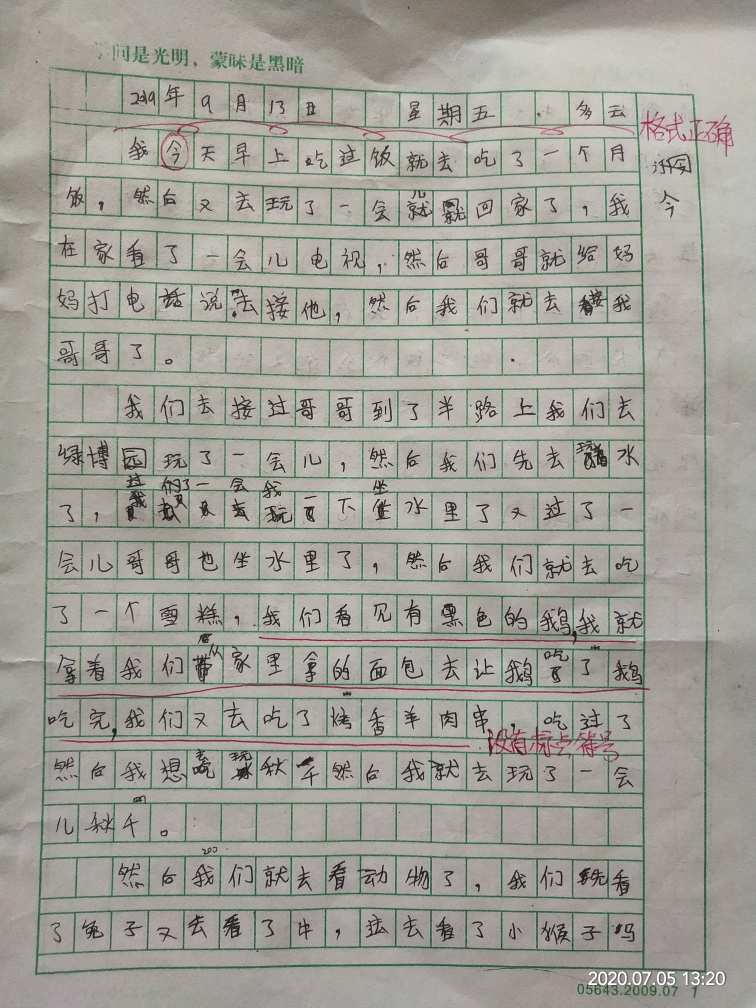 问是光明，蒙昧是黑暗
2019年9月13日 星期五 多云
格式正确
我今天早上吃过饭就去吃了一个月
词
今
饭，然后又去玩了一会儿就回家了，我
在家看了一会儿电视，然后哥哥就给妈
妈打电话说去接他，然后我们就去接我
哥哥了。
我们去接过哥哥到了半路上我们去
绿博园玩了一会儿，然后我们先去玩水
过们了一会我一坐
了，我又去玩下水里了又过了一
会儿哥哥也坐水里了，然后我们就去吃
了一个雪糕，我们看见有黑色的鹅，我就
拿着我们从家里拿的面包去让鹅吃了鹅
吃完，我们又去吃了烤香羊肉串，吃过了
没有标点符号
然后我想去玩秋千然后我就去玩了一会
儿秋千。
200
然后我们就去看动物了，我们先看
了兔子又去看了牛，还去看了小猴子吗
2020.07.05 13:20
05643.2009.07 1